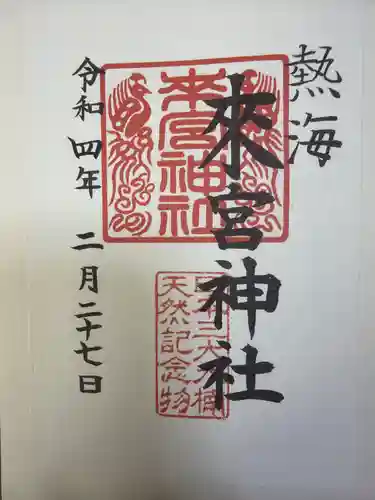 熱海
來宮神社
令和四年 二月二十七日
來宮神社
天然記念物